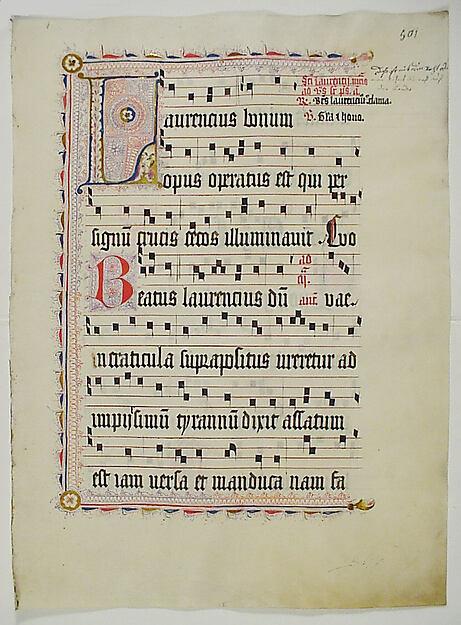 501
Sci laurencij mris
ad Vs sr ps. a.
R. Btus laurenciu clama.
V. Gla i hono.
Laurencius bonum
opus operatus est qui per
signū crucis cecos illuminavit .Evo
Beatus laurencius dū ad q. anc vae.
in craticula suprapositus ureretur ad
impijsimū tyrannū dixit assatum
est iam versa et manduca nam fa